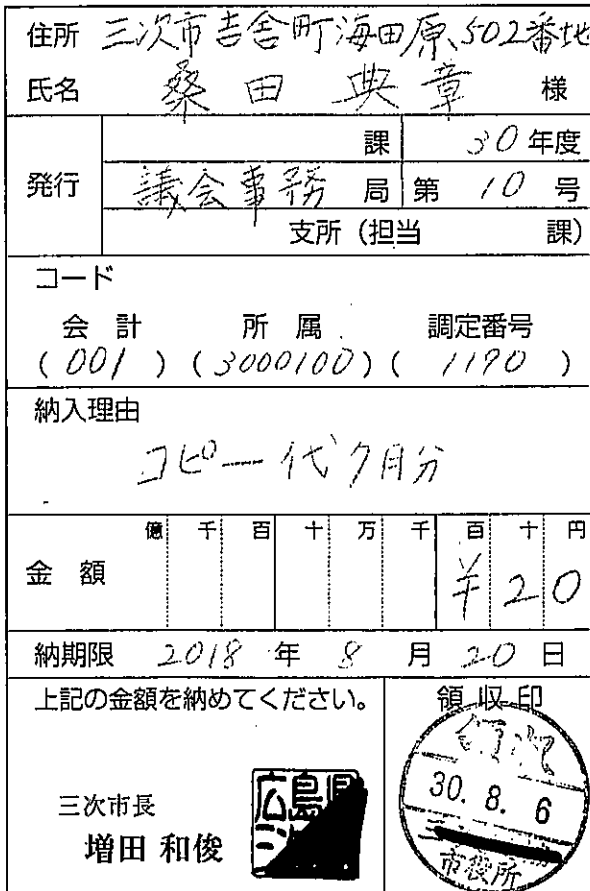 住所 三次市吉舎町海田原502番地
氏名 桑田 典章 様
発行
課 30年度
議会事務局 第10号
支所(担当 課)
コード
会計 所属 調定番号
(001)(3000100)(1190)
納入理由
コピー代7月分
億 千 百 十 万 千 百 十 円
金額 ¥20
納期限 2018年8月20日
上記の金額を納めてください。
三次市長
増田 和俊
広島県
領収印
領収
30. 8. 6
市役所